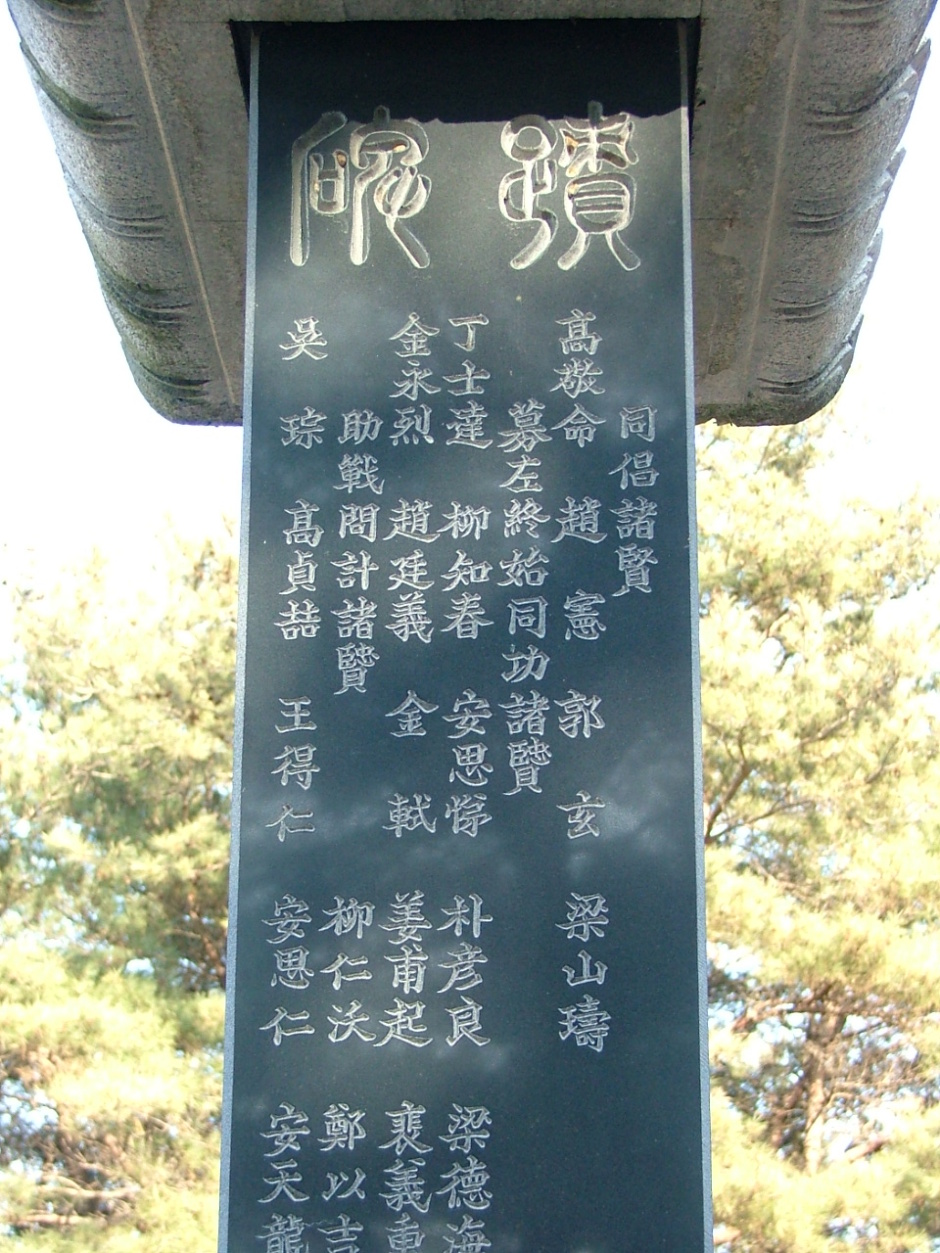 蹟碑
同倡諸賢
高敬命 趙 憲 郭 玄 梁山璹
募左終始同功諸賢
丁士達 柳知春 安思悰 朴彦良 梁德海
金永烈 趙廷義 金 軾 姜甫起 裵義重
助戰問計諸賢 柳仁沃 鄭以吉
吳 琮 高貞喆 王得仁 安思仁 安天龍